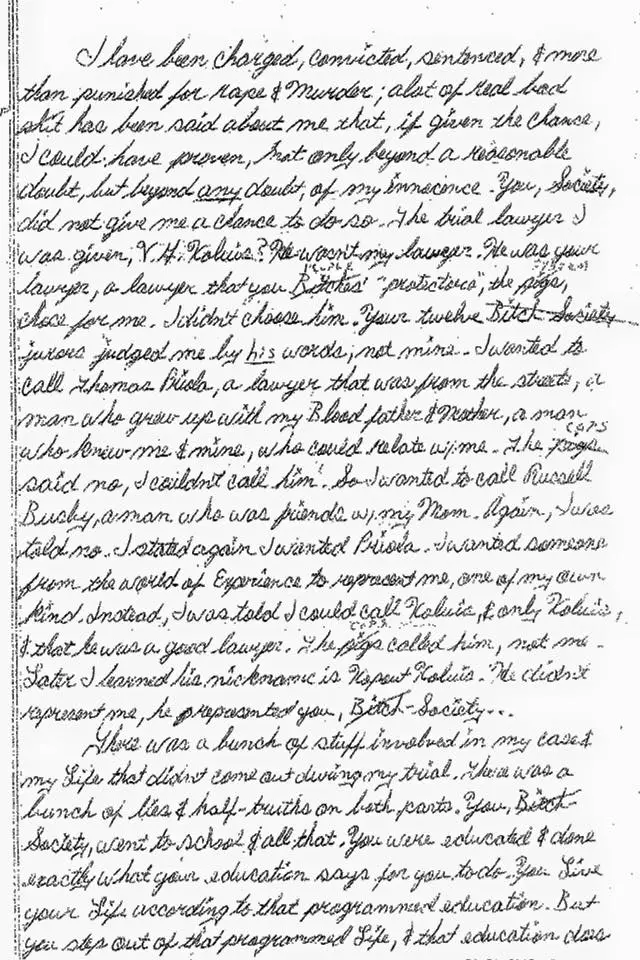 I have been charged, convicted, sentenced, & more
than punished for rape & Murder; alot of real bad
shit has been said about me that, if given the chance,
I could have proven, not only beyond a reasonable
doubt, but beyond any doubt, of my innocence. You, Society,
did not give me a chance to do so. The trial lawyer I
was given, V.H. Kolius? He wasn't my lawyer. He was your
people system
lawyer, a lawyer that you Bitches' "protectors", the pigs,
chose for me. I didn't choose him. Your twelve Bitch-Society
jurors judged me by his words, not mine. I wanted to
call Thomas Priola, a lawyer that was from the streets, a
man who grew up with my Blood father & Mother, a man
COPS
who knew me & mine, who could relate w/ me. The pigs
said no, I couldn't call him! So I wanted to call Russell
Busby, a man who was friends w/ my Mom. Again, I was
told no. I stated again I wanted Priola. I wanted someone
from the world of Experience to represent me, one of my own
kind. Instead, I was told I could call Kolius, & only Kolius,
COPS
& that he was a good lawyer. The pigs called him, not me.
Later I learned his nickname is Repeat Kolius. He didn't
represent me, he prepresented you, Bitch-Society...
There was a bunch of stuff involved in my case &
my Life that didn't come out during my trial. There was a
bunch of lies & half-truths on both parts. You, Bitch-
Society, went to school & all that. You were educated & done
exactly what your education says for you to do. You Live
your Life according to that programmed education. But
you step out of that programmed Life, & that education does